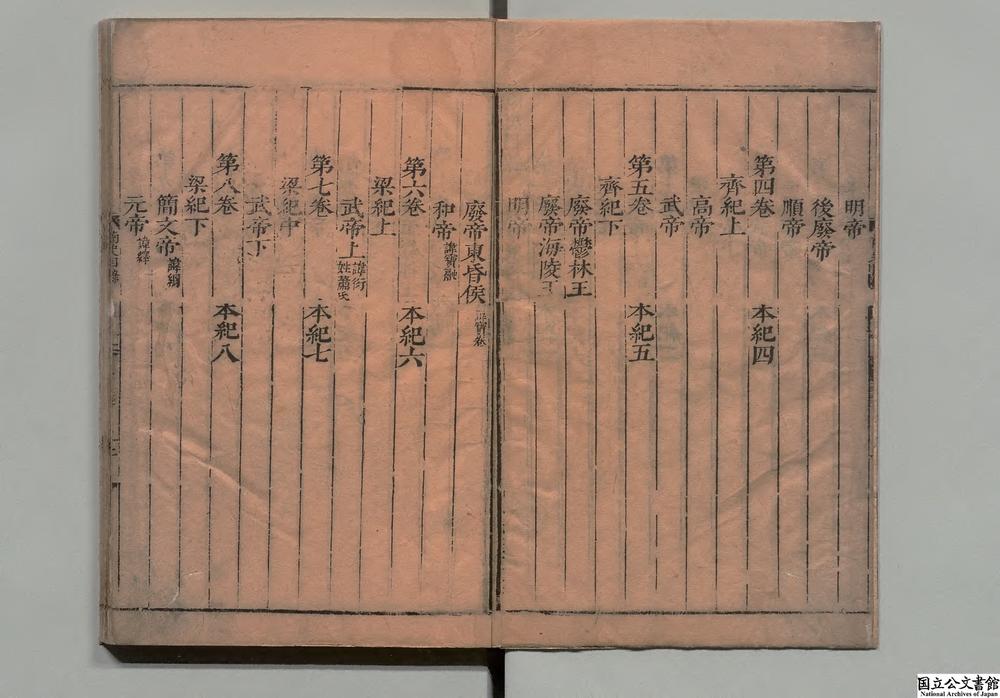 明帝
後廢帝
順帝
第四卷 本紀四
齊紀上
高帝
武帝
第五卷 本紀五
齊紀下
廢帝鬱林王
廢帝海陵王
明帝
廢帝東昏侯 寶卷
和帝 諱寶融
第六卷 本紀六
梁紀上
武帝上 諱衍姓蕭氏
第七卷 本紀七
梁紀中
武帝下
第八卷 本紀八
梁紀下
簡文帝 諱綱
元帝 諱繹
国立公文書館
National Archives of Japan